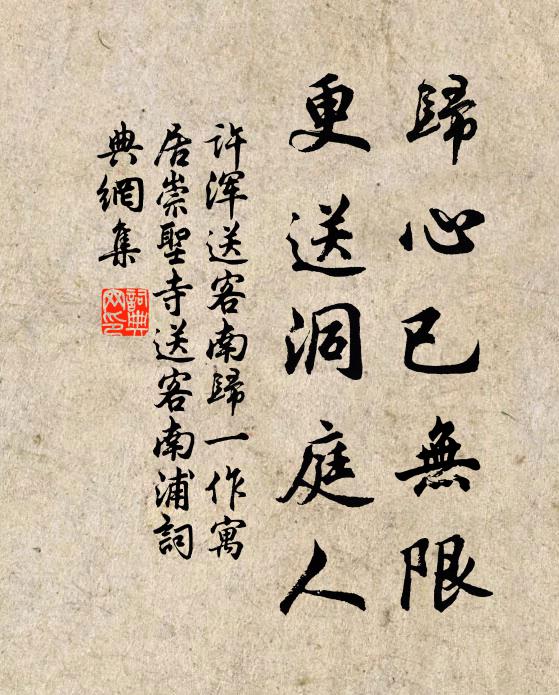 歸心已無限
更送洞庭人
许浑送客南歸一作寓
居崇聖寺送客南浦詞
典網集
詞典網印